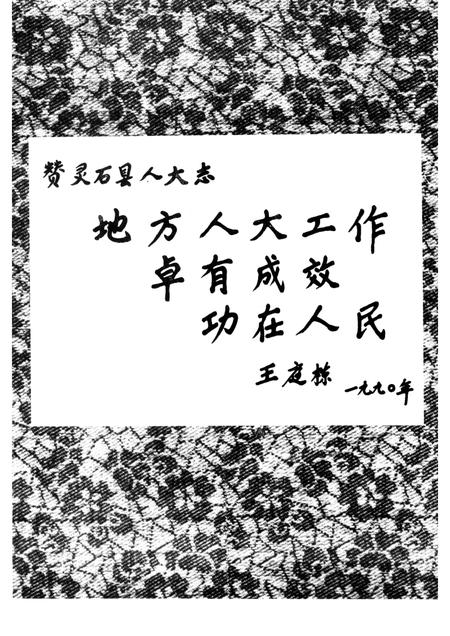 赞灵石县人大志
地方人大工作
卓有成效
功在人民
王庭栋
一九九〇年